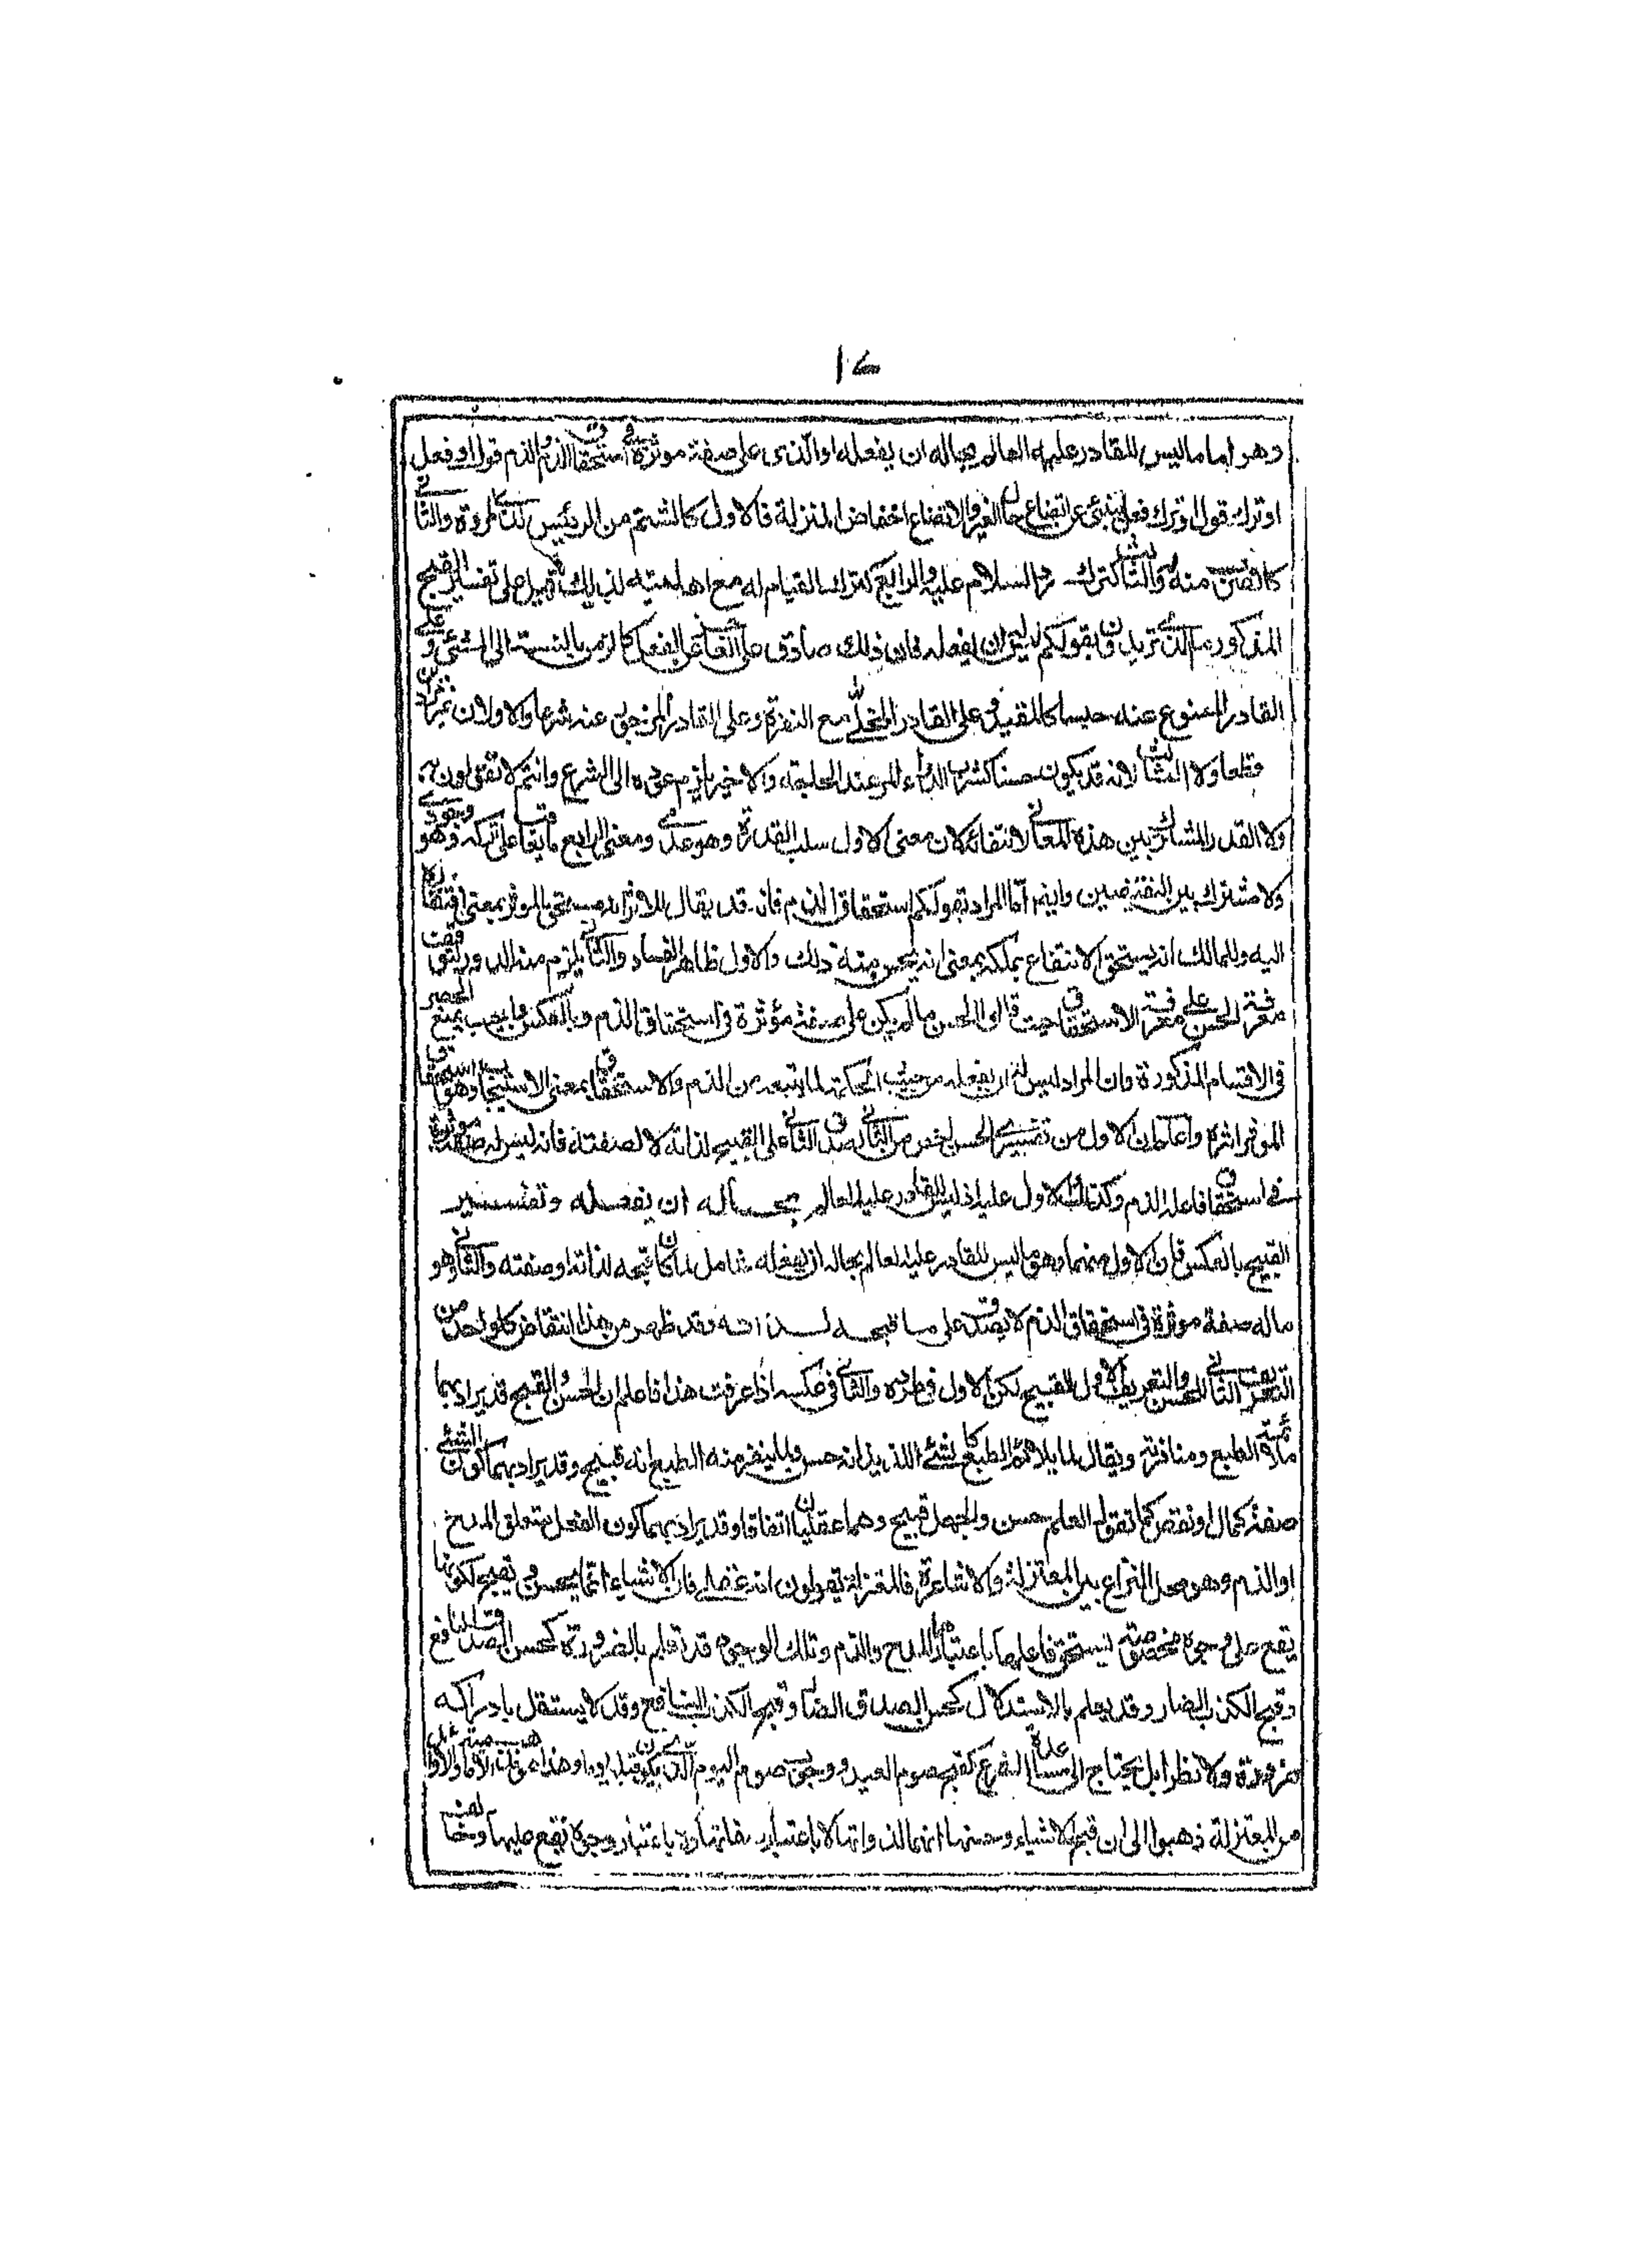 ١٧
وهو اما ما ليس للقادر عليه العالم بحاله ان يفعله او الذى على صفة موثرة فى استحقاق الذم والذم قول او فعل
او ترك قول او ترك فعل ينبئ عن اتضاع حال الغير والاتضاع انخفاض المنزلة فالاول كالشتم من الرئيس لذى المروة والثانى
منه والثالث كترك رد السلام عليه والرابع كترك القيام له مع اهليته لذلك قيل على تفسير القبيح
المذكور ما الذى تريدون بقولكم ليس له ان يفعله فان ذلك صادق على العاجز عن الفعل كالزمن بالنسبة الى المشى وعلى
القادر الممنوع عنه حسا كالمقيد وعلى القادر المخلى مع النفرة وعلى القادر المزجور عنه شرعا والاولان غير مرادين
قطعا ولا الثالث لانه قد يكون حسنا كشرب الدواء المر عند الحاجة والاخير يلزم عوده الى الشرع وانتم لا تقولون به
ولا القدر المشترك بين هذه المعانى لانتفائه لان معنى الاول سلب القدرة وهو عدمى ومعنى الرابع ما يعاقب على تركه وهو وجودى
ولا مشترك بين النقيضين وايضا ما المراد بقولكم استحقاق الذم فانه قد يقال للاثر انه يستحق الموثر بمعنى افتقاره
اليه وللمالك انه يستحق الانتفاع بملكه بمعنى انه يحسن منه ذلك والاول ظاهر الفساد والثانى يلزم منه الدور لتوقف
معرفة الحسن على معرفة الاستحقاق حيث قالوا الحسن ما لم يكن على صفة مؤثرة فى استحقاق الذم وبالعكس واجيب بمنع الحصر
فى الاقسام المذكورة فان المراد ليس له ان يفعله من حيث الحكمة لما يتبعه من الذم والاستحقاق بمعنى الاستيجاب وهو استحقاق
الموثر اثره واعلم ان الاول من تفسيرى الحسن اخص من الثانى لصدق الثانى على القبيح لذاته لا لصفته فانه ليس له صفة موثرة
فى استحقاق فاعله الذم وكذب الاول عليه اذ ليس للقادر عليه العالم بحاله ان يفعله وتفسير
القبيح بالعكس فان الاول منهما وهو ما ليس للقادر عليه العالم بحاله ان يفعله شامل لما كان قبحه لذاته او صفته والثانى وهو
ماله صفة موثرة فى استحقاق الذم لا يصدق على ما قبحه لذاته وقد ظهر من هذا انتقاض كل واحد من
التعريف الثانى للحسن والتعريف الاول للقبيح لكن الاول فى طرده والثانى فى عكسه اذا عرفت هذا فاعلم ان الحسن والقبيح قد يراد بهما
ملائمة الطبع ومنافرته ويقال لما يلائم الطبع كالشئ اللذيذ انه حسن ولما ينفر منه الطبع انه قبيح وقد يراد بهما كون الشئ
صفة كمال او نقص كما تقول العلم حسن والجهل قبيح وهما عقليان اتفاقا وقد يراد بهما كون الفعل متعلق المدح
او الذم وهو محل النزاع بين المعتزلة والاشاعرة فالمعتزلة يقولون انه عقلى فان الاشياء انما يحسن ويقبح لكونها
يقع على وجوه مخصوصة يستحق فاعلها باعتبارها المدح والذم وتلك الوجوه قد تعلم بالضرورة كحسن الصدق النافع
وقبح الكذب الضار وقد يعلم بالاستدلال كحسن الصدق الضار وقبح الكذب النافع وقد لا يستقل بادراكه
ضرورة ولا نظرا بل يحتاج الى مساعدة الشرع كقبح صوم العيد ووجوب صوم اليوم الذى يكون قبله يوما وهذا هو مذهب الاوائل
من المعتزلة ذهبوا الى ان قبح الاشياء وحسنها انما لذواتها لا باعتبار صفاتها ولا باعتبار وجوه تقع عليها